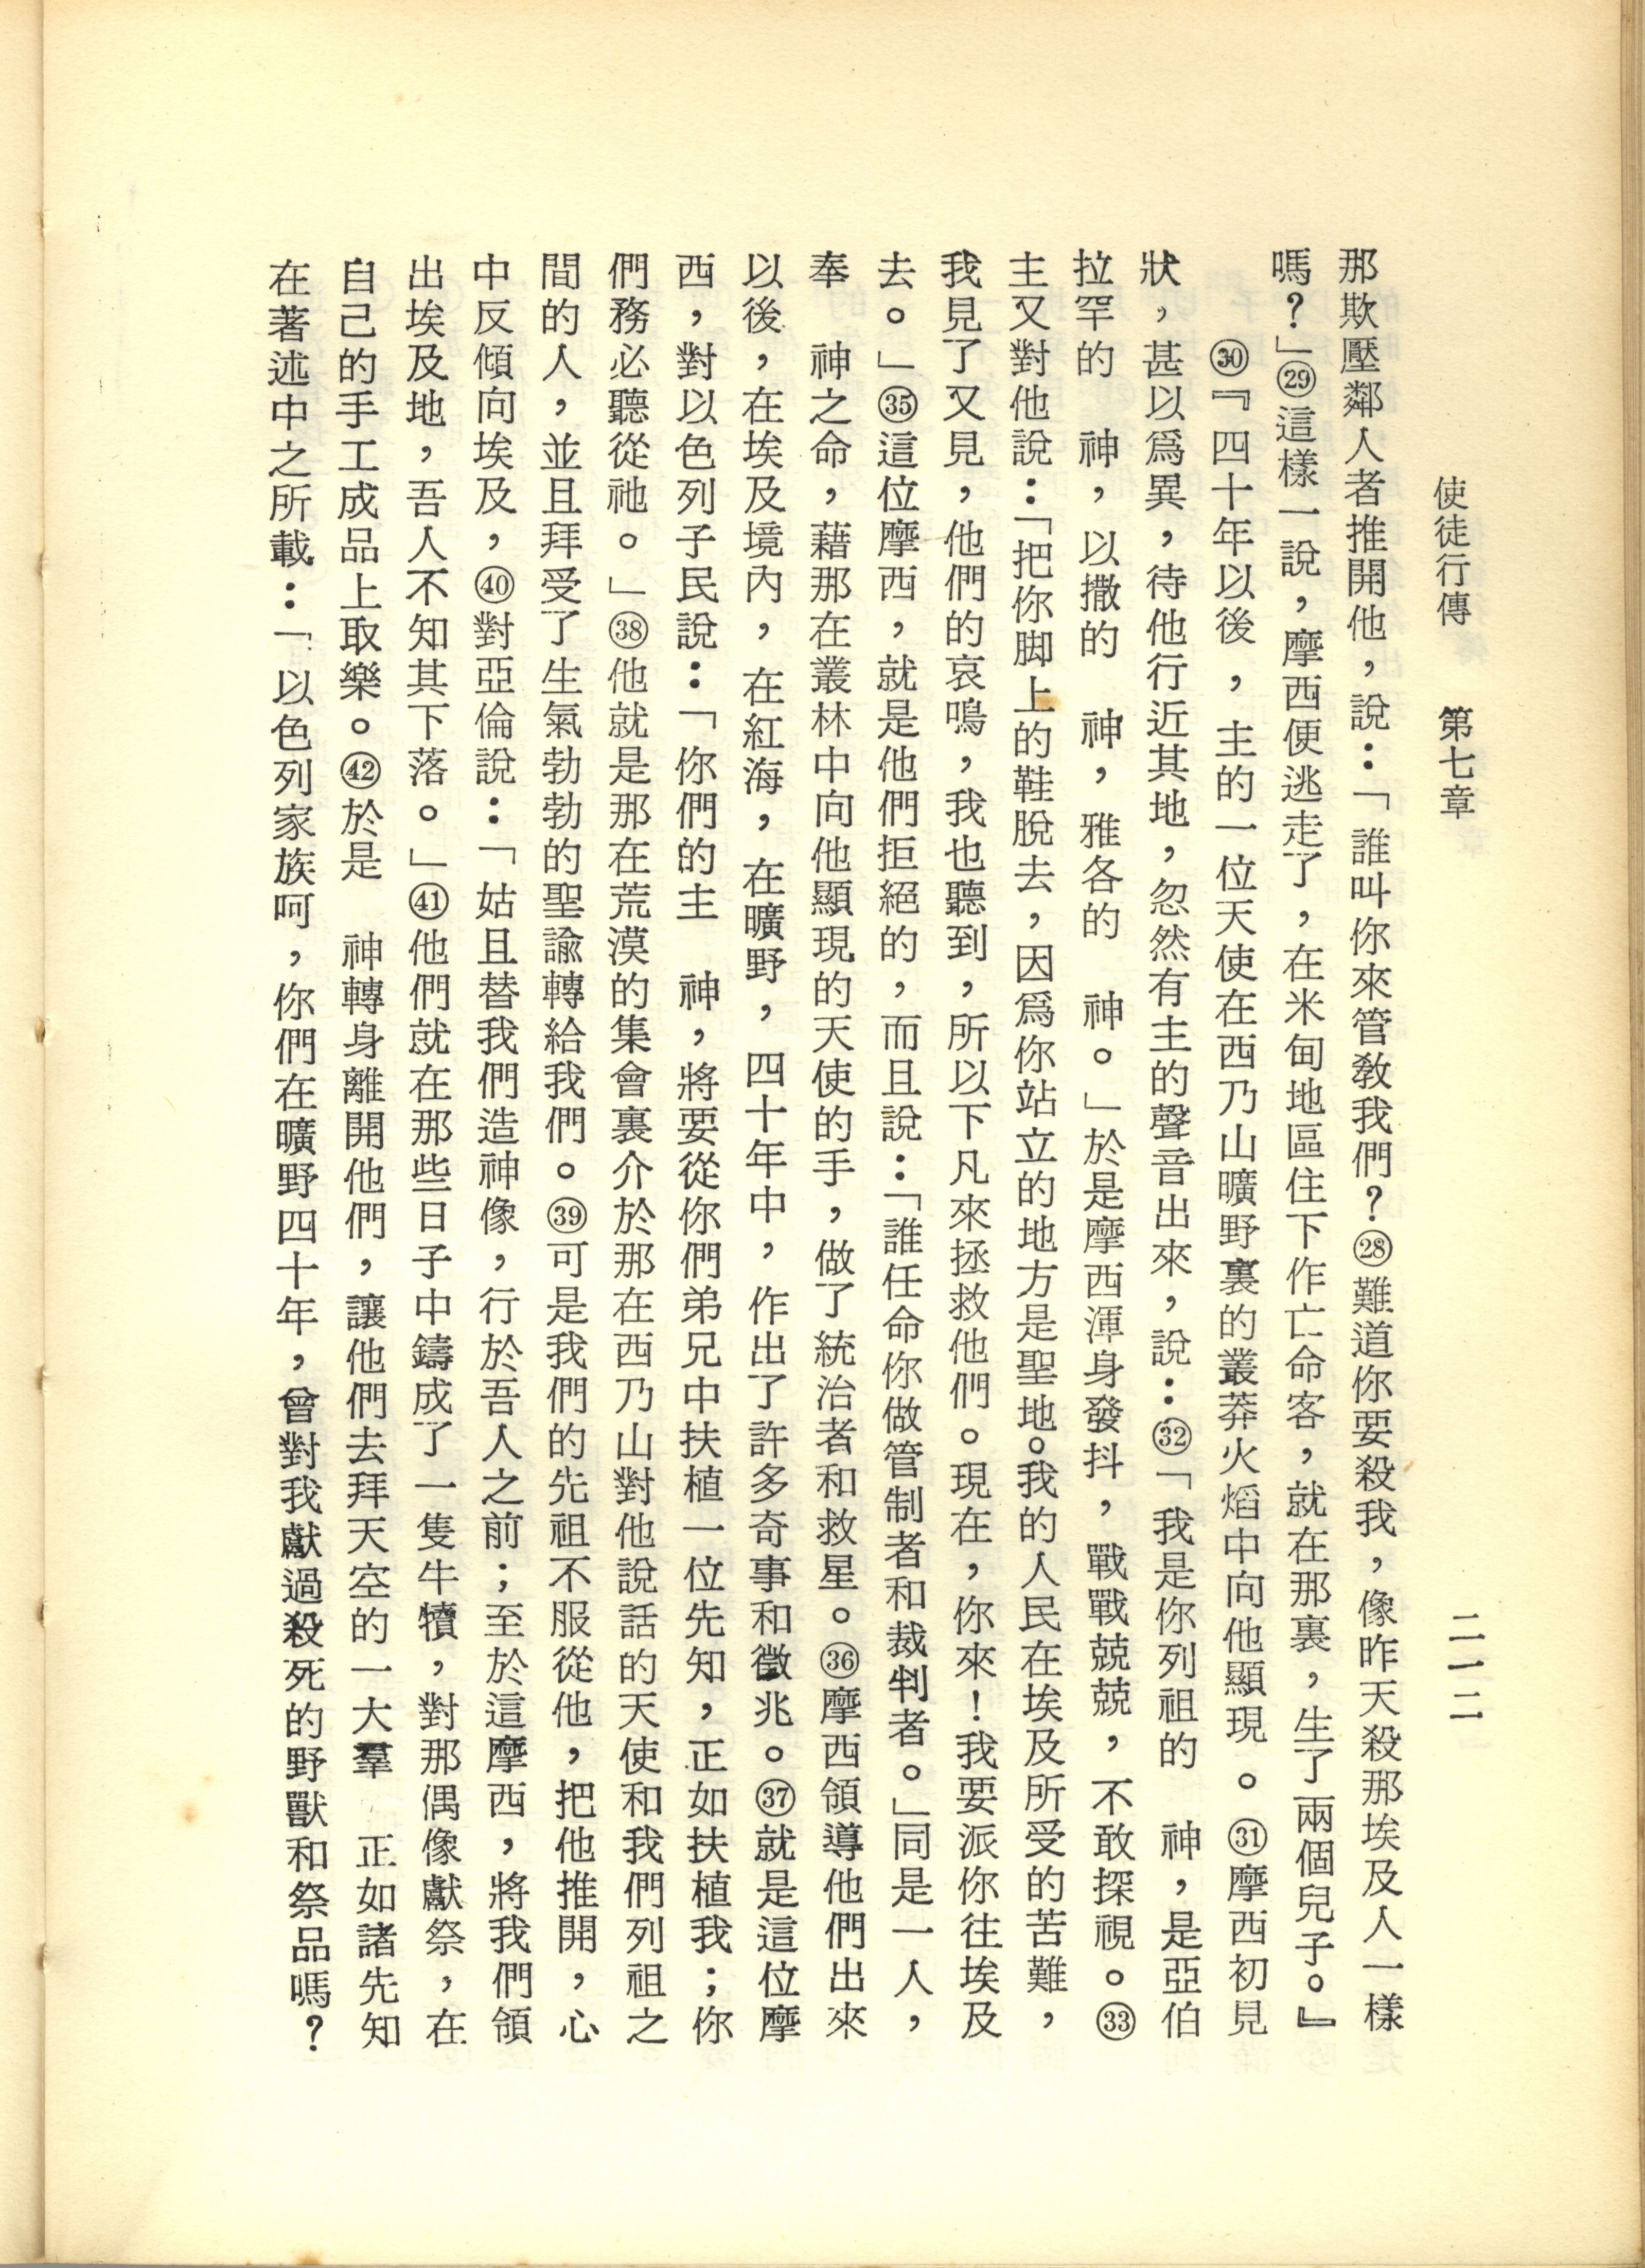 使徒行傳　第七章　二一二
那欺壓鄰人者推開他，說：「誰叫你來管敎我們？㉘難道你要殺我，像昨天殺那埃及人一樣
嗎？」㉙這樣一說，摩西便逃走了，在米甸地區住下作亡命客，就在那裏，生了兩個兒子。』
㉚『四十年以後，主的一位天使在西乃山曠野裏的叢莽火熖中向他顯現。㉛摩西初見
狀，甚以爲異，待他行近其地，忽然有主的聲音出來，說：㉜「我是你列祖的　神，是亞伯
拉罕的　神，以撒的　神，雅各的　神。」於是摩西渾身發抖，戰戰兢兢，不敢探視。㉝
主又對他說：「把你脚上的鞋脫去，因爲你站立的地方是聖地。我的人民在埃及所受的苦難，
我見了又見，他們的哀鳴，我也聽到，所以下凡來拯救他們。現在，你來！我要派你往埃及
去。」㉟這位摩西，就是他們拒絕的，而且說：「誰任命你做管制者和裁判者。」同是一人，
奉　神之命，藉那在叢林中向他顯現的天使的手，做了統治者和救星。㊱摩西領導他們出來
以後，在埃及境內，在紅海，在曠野，四十年中，作出了許多奇事和徵兆。㊲就是這位摩
西，對以色列子民說：「你們的主　神，將要從你們弟兄中扶植一位先知，正如扶植我；你
們務必聽從祂。」㊳他就是那在荒漠的集會裏介於那在西乃山對他說話的天使和我們列祖之
間的人，並且拜受了生氣勃勃的聖諭轉給我們。㊴可是我們的先祖不服從他，把他推開，心
中反傾向埃及，㊵對亞倫說：「姑且替我們造神像，行於吾人之前；至於這摩西，將我們領
出埃及地，吾人不知其下落。」㊶他們就在那些日子中鑄成了一隻牛犢，對那偶像獻祭，在
自己的手工成品上取樂。㊷於是　神轉身離開他們，讓他們去拜天空的一大羣　正如諸先知
在著述中之所載：「以色列家族呵，你們在曠野四十年，曾對我獻過殺死的野獸和祭品嗎？